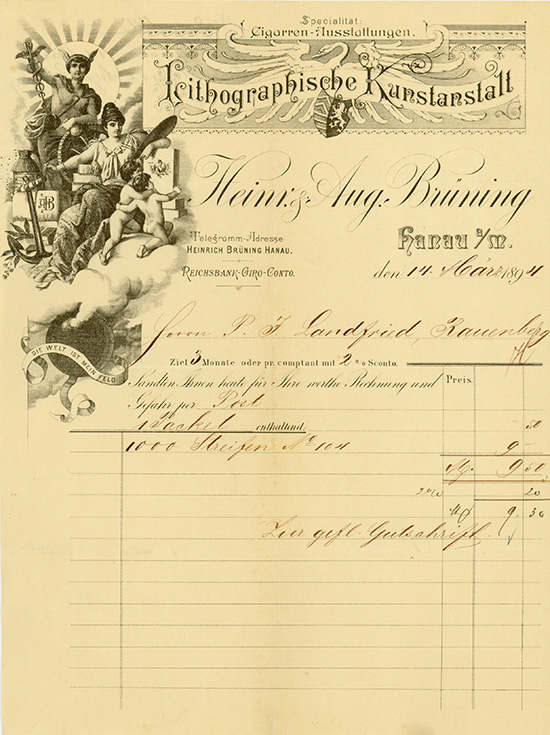 Specialität:
Cigarren-Ausstattungen.
Lithographische Kunstanstalt
Heinr. & Aug. Brüning
Telegramm-Adresse
HEINRICH BRÜNING HANAU.
Hanau a/M.
REICHSBANK-GIRO-CONTO.
den 14. März 1894
Herrn P. J. Landfried, Rauenberg
DIE WELT IST MEIN FELD
Ziel 3 Monate oder pr. comptant mit 2 % Sconto.
Sandten Ihnen heute für Ihre werthe Rechnung und Preis.
Gefahr per Post
1 Packet enthaltend: 50
1000 Streifen No 104 9 –
M. 9 50
2% 20
M 9. 30
Zur gefl. Gutschrift.